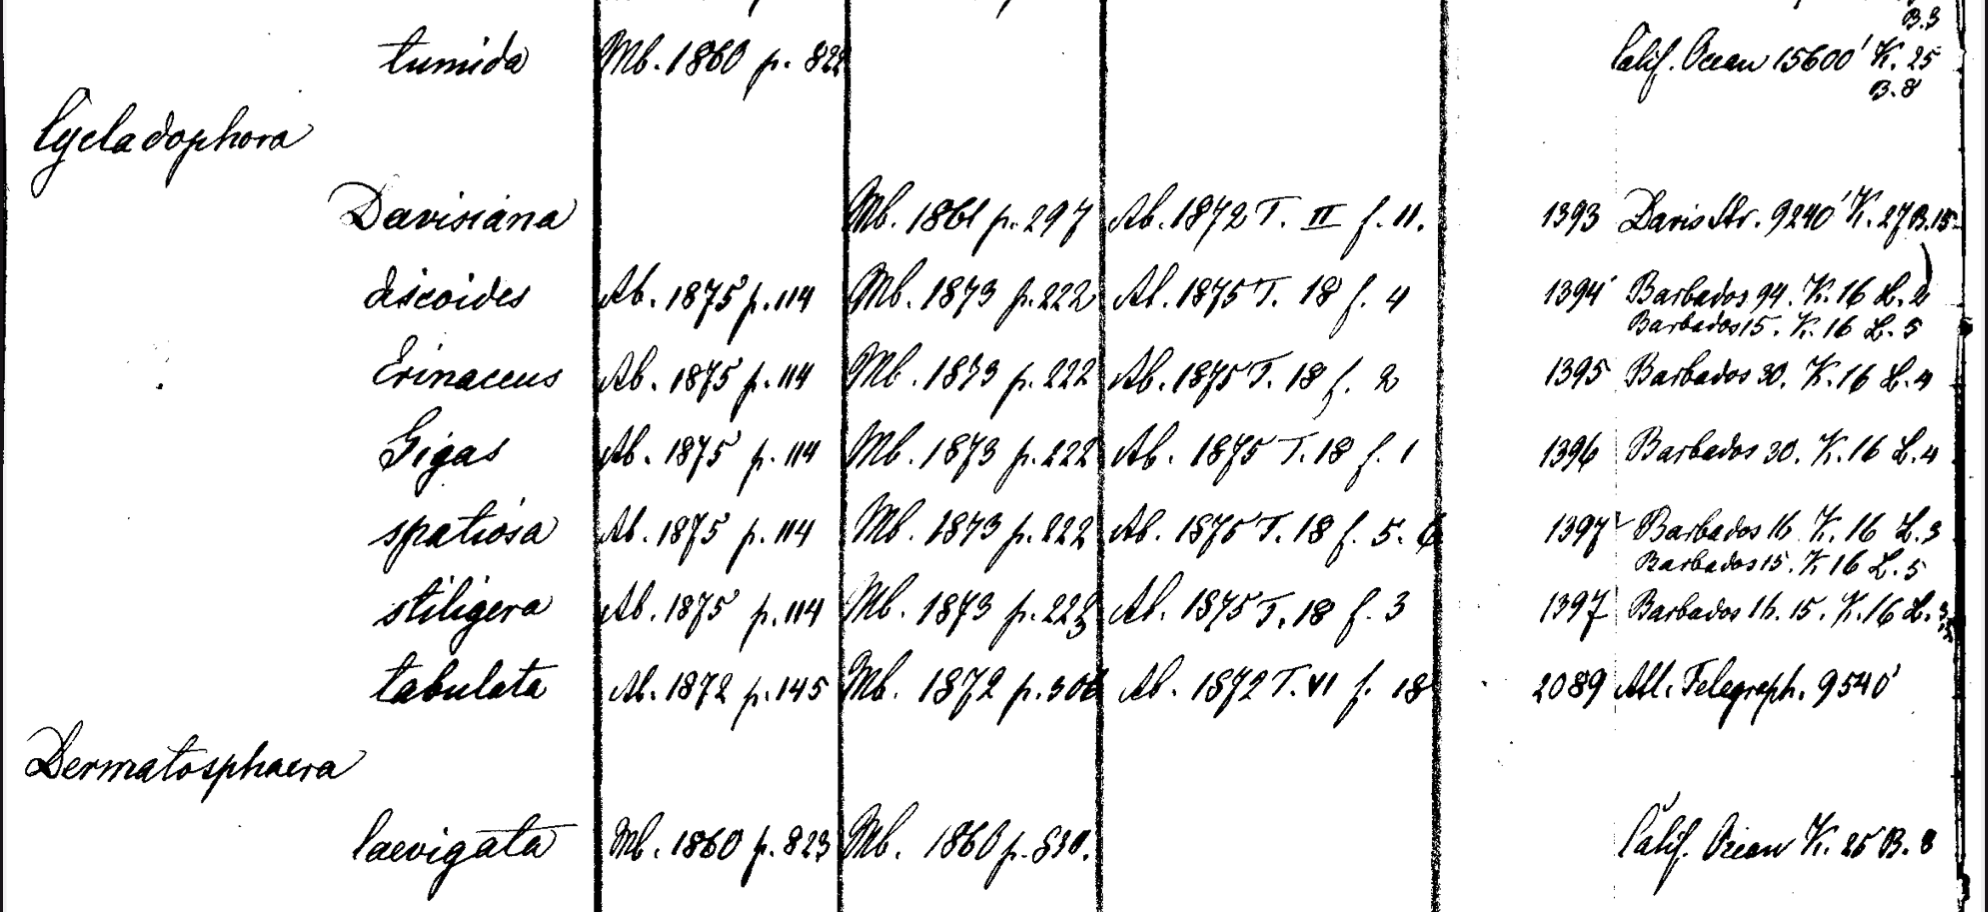 B.3
tumida Mb. 1860 p. 822 Calif. Ocean 15600' K. 25
B. 8
Cycladophora
Davisiana Mb. 1861 p. 297 Ab. 1872 T. II f. 11. 1393 Davis Str. 9240' K. 27 B. 15
discoides Ab. 1875 p. 114 Mb. 1873 p. 222 Ab. 1875 T. 18 f. 4 1394 Barbados 94. K. 16 L. 2
Barbados 15. K. 16 L. 5
Erinaceus Ab. 1875 p. 114 Mb. 1873 p. 222 Ab. 1875 T. 18 f. 2 1395 Barbados 30. K. 16 L. 4
Gigas Ab. 1875 p. 114 Mb. 1873 p. 222 Ab. 1875 T. 18 f. 1 1396 Barbados 30. K. 16 L. 4
spatiosa Ab. 1875 p. 114 Mb. 1873 p. 222 Ab. 1875 T. 18 f. 5. 6 1397 Barbados 16 K. 16 L. 3
Barbados 15. K 16 L. 5
stiligera Ab. 1875 p. 114 Mb. 1873 p. 223 Ab. 1875 T. 18 f. 3 1397 Barbados 16. 15. K. 16 L. 3
tabulata Ab. 1872 p. 145 Mb. 1872 p. 306 Ab. 1872 T. VI f. 18 2089 Atl. Telegraph. 9540'
Dermatosphaera
laevigata Mb. 1860 p. 823 Mb. 1860 p. 830. Calif. Ocean K. 25 B. 8